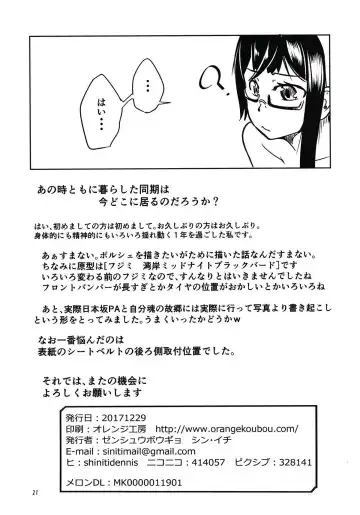 ・・・
はい・・・
あの時ともに暮らした同期は
今どこに居るのだろうか？
はい、初めましての方は初めまして。お久しぶりの方はお久しぶり。
身体的にも精神的にもいろいろ揺れ動く１年を過ごした私です。
あぁすまない。ポルシェを描きたいがために描いた話なんだすまない。
ちなみに原型は[フジミ　湾岸ミッドナイトブラックバード]です
いろいろ変わる前のフジミなので、すんなりとはいきませんでしたね
フロントバンパーが長すぎとかタイヤの位置がおかしいとかいろいろね
あと、実際日本坂PAと自分魂の故郷には実際に行って写真より書き起こし
という形をとってみました。うまくいったかどうかｗ
なお一番悩んだのは
表紙のシートベルトの後ろ側取付位置でした。
それでは、またの機会に
よろしくお願いします
発行日：20171229
印刷：オレンジ工房　http://www.orangekoubou.com/
発行者：ゼンシュウボウギョ　シン・イチ
E-mail：sinitimail@gmail.com
ヒ：shinitidennis　ニコニコ：414057　ピクシブ：328141
メロンDL：MK0000011901
21